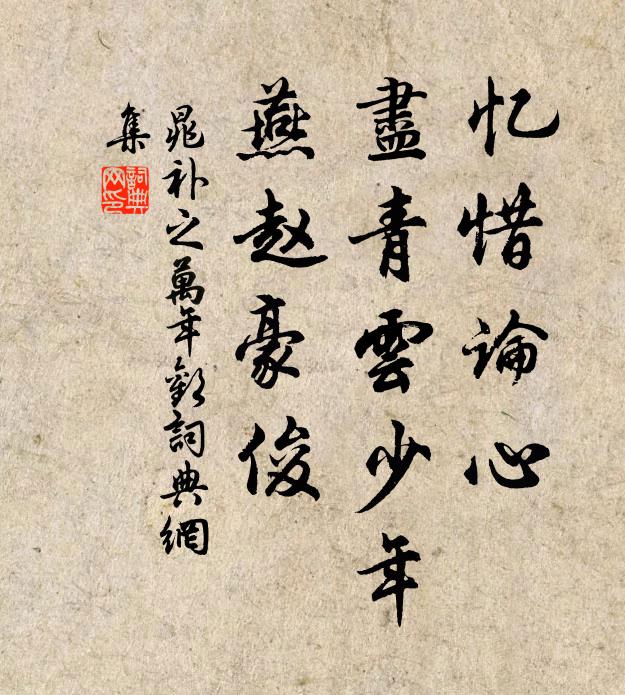 忆惜論心
盡青雲少年
燕赵豪俊
晁补之萬年歡詞典網
集
詞典
网印